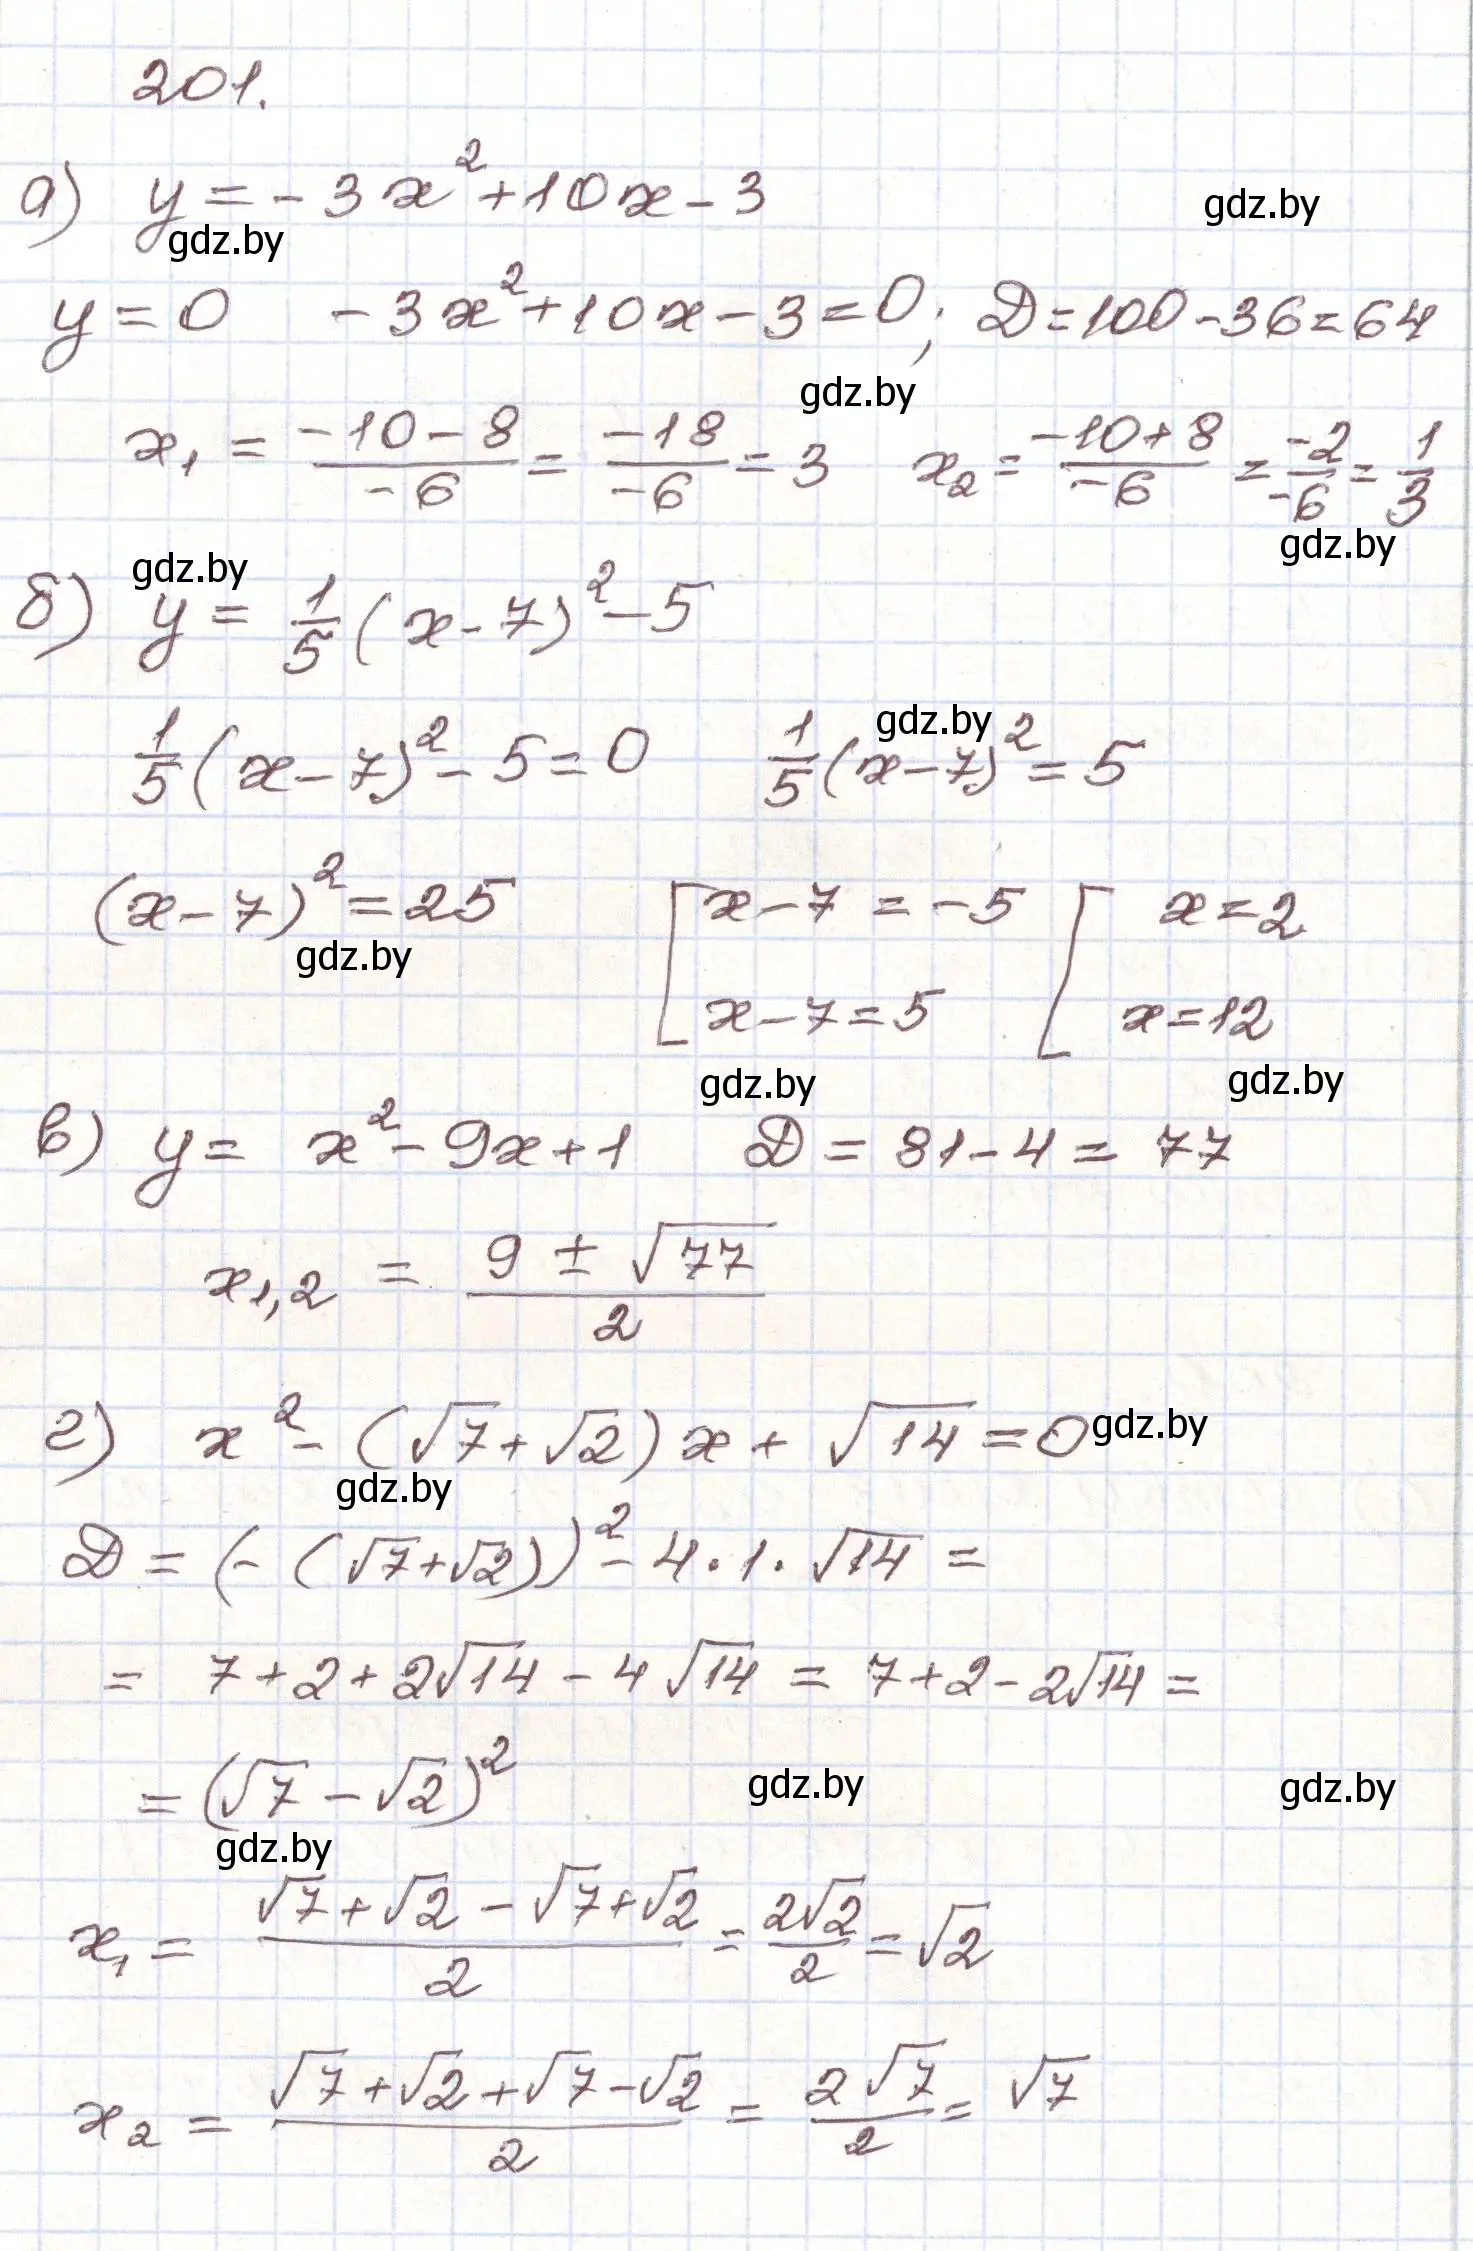 201.
а) y = -3x² + 10x - 3
gdz.by
gdz.by
y = 0 -3x² + 10x - 3 = 0; D = 100 - 36 = 64
gdz.by
x₁ = (-10-8)/(-6) = (-18)/(-6) = 3 x₂ = (-10+8)/(-6) = (-2)/(-6) = 1/3
gdz.by
gdz.by
б) y = 1/5 (x-7)² - 5
gdz.by
1/5 (x-7)² - 5 = 0 1/5 (x-7)² = 5
(x-7)² = 25 [ x-7 = -5 [ x = 2
gdz.by
x-7 = 5 x = 12
gdz.by
gdz.by
в) y = x² - 9x + 1 D = 81 - 4 = 77
x₁,₂ = (9 ± √77)/2
г) x² - (√7 + √2) x + √14 = 0
gdz.by
gdz.by
D = (-(√7+√2))² - 4·1·√14 =
= 7 + 2 + 2√14 - 4√14 = 7 + 2 - 2√14 =
= (√7 - √2)²
gdz.by
gdz.by
gdz.by
x₁ = (√7+√2-√7+√2)/2 = 2√2/2 = √2
x₂ = (√7+√2+√7-√2)/2 = 2√7/2 = √7